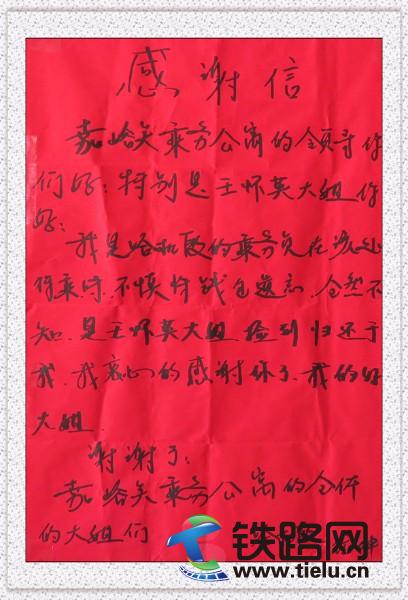 感谢信
嘉峪关乘务公寓的领导你
们好；特别是王怀英大姐你
好；
我是哈和段的乘务员在该处
待乘时，不慎将钱包遗忘，全然不
知，是王怀英大姐捡到归还于
我，我衷心的感谢你了，我的好
大姐.
谢谢了；
嘉峪关乘务公寓的全体
的大姐们
铁路网
www.tielu.cn